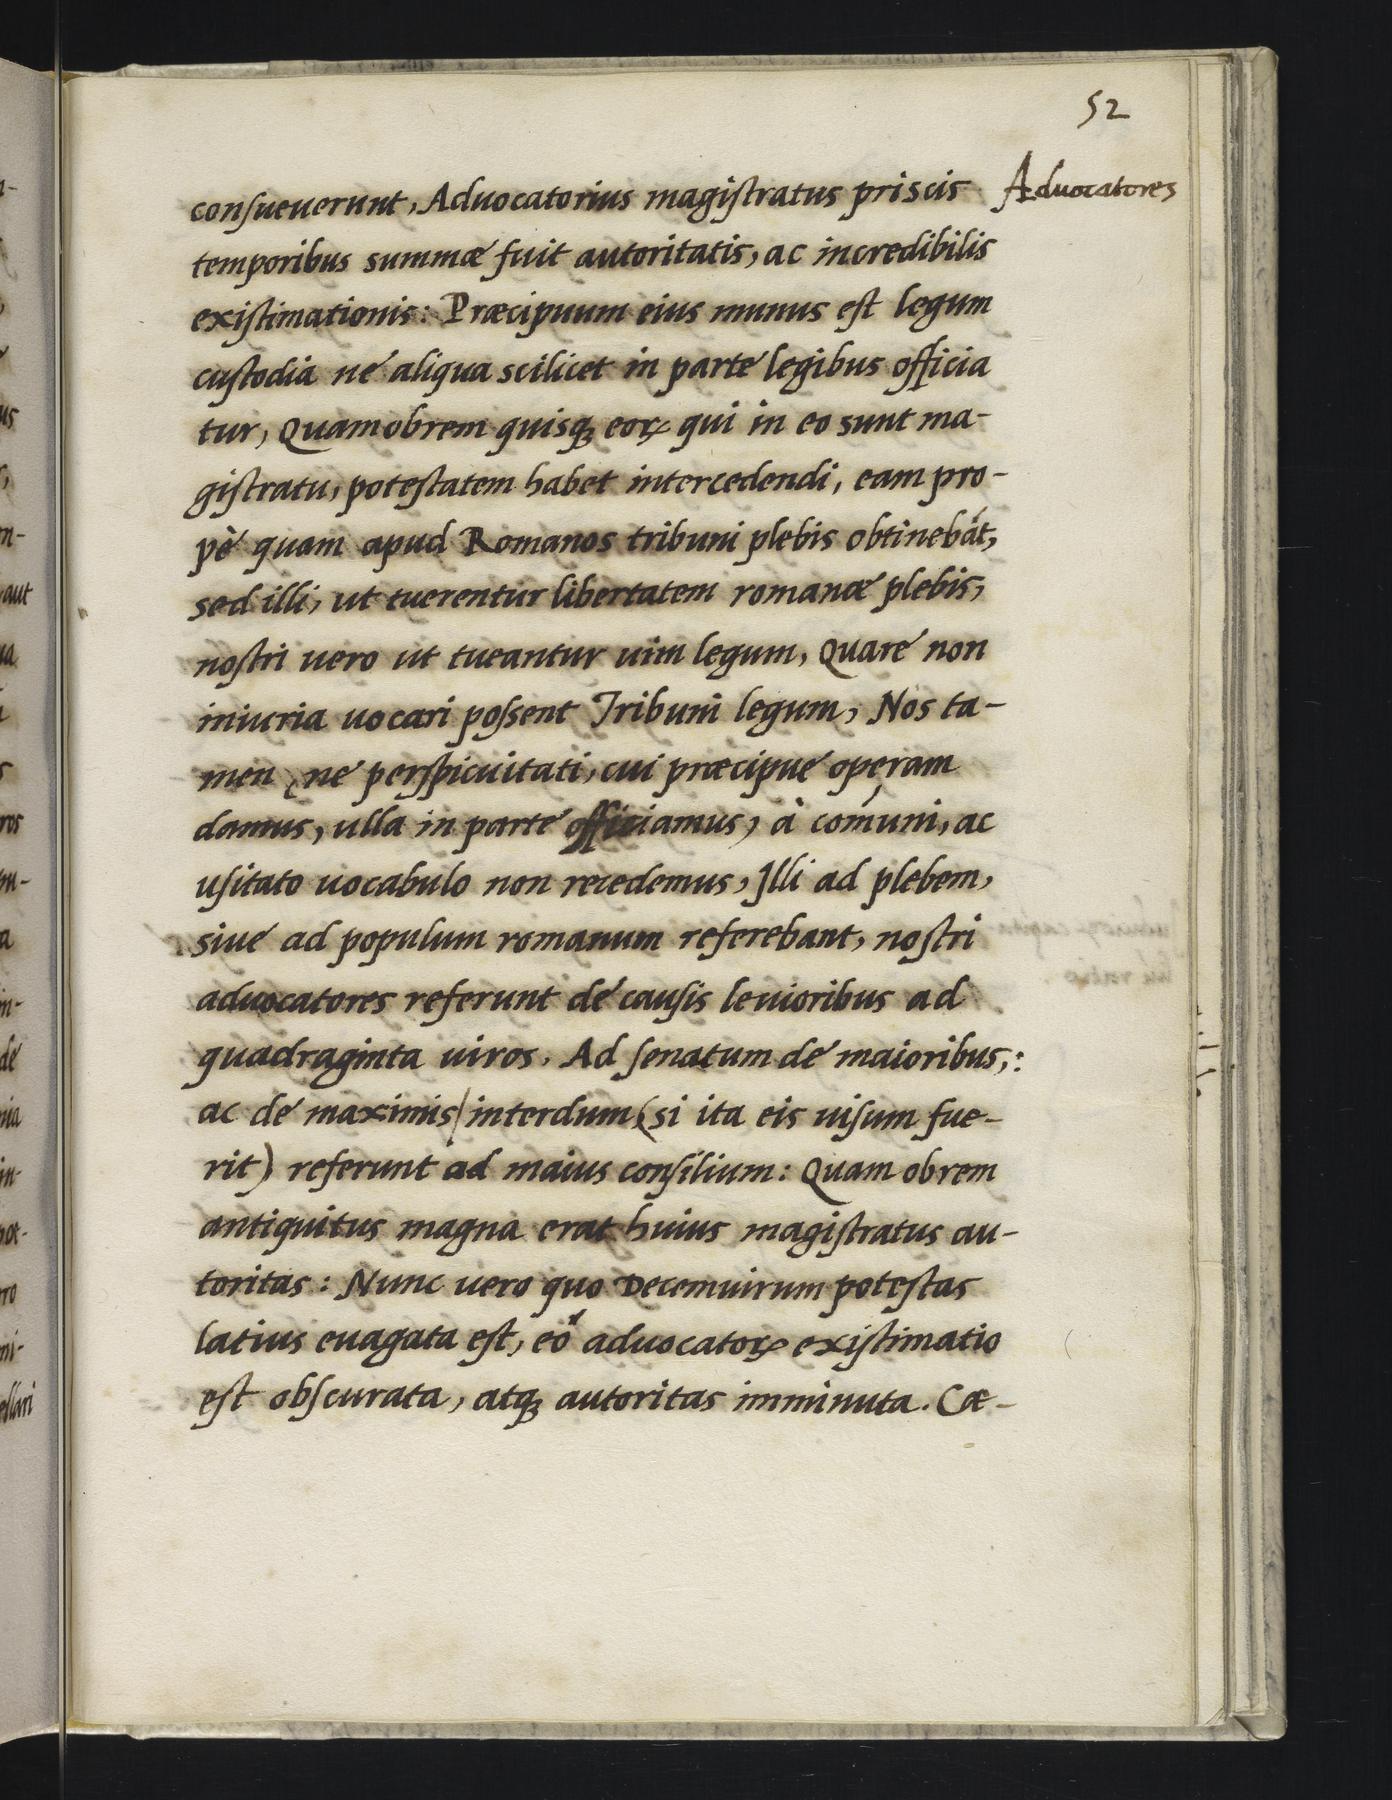 52
Aduocatores
conſueuerunt, Aduocatorius magiſtratus priscis
temporibus summæ fuit autoritatis, ac incredibilis
exiſtimationis: Præcipuum eius munus eſt legum
cuſtodia né aliqua scilicet in parté legibus officia
tur, Quamobrem quisqꝫ eoꝝ qui in eo sunt ma-
giſtratu, poteſtatem habet intercedendi, eam pro-
pè quam apud Romanos tribuni plebis obtinebāt,
sed illi, ut tuerentur libertatem romanæ plebis,
noſtri uero ut tueantur uim legum, Quaré non
iniuria uocari poſsent Tribuni legum, Nos ta-
men (né perſpicuitati, cui præcipué operam
damus, ulla in parté officiamus) à com̄uni, ac
uſitato uocabulo non recedemus, Illi ad plebem,
siué ad populum romanum referebant, noſtri
aduocatores referunt dé cauſis leuioribus ad
quadraginta uiros. Ad ſenatum dé maioribus,:
ac dé maximis/interdum (si ita eis uiſum fue-
rit) referunt ad maius conſilium: Quam obrem
antiquitus magna erat huius magiſtratus au-
toritas: Nunc uero quo Decemuirum poteſtas
latius euagata eſt, eó aduocatoꝝ exiſtimatio
eſt obſcurata, atqꝫ autoritas imminuta. Cæ-